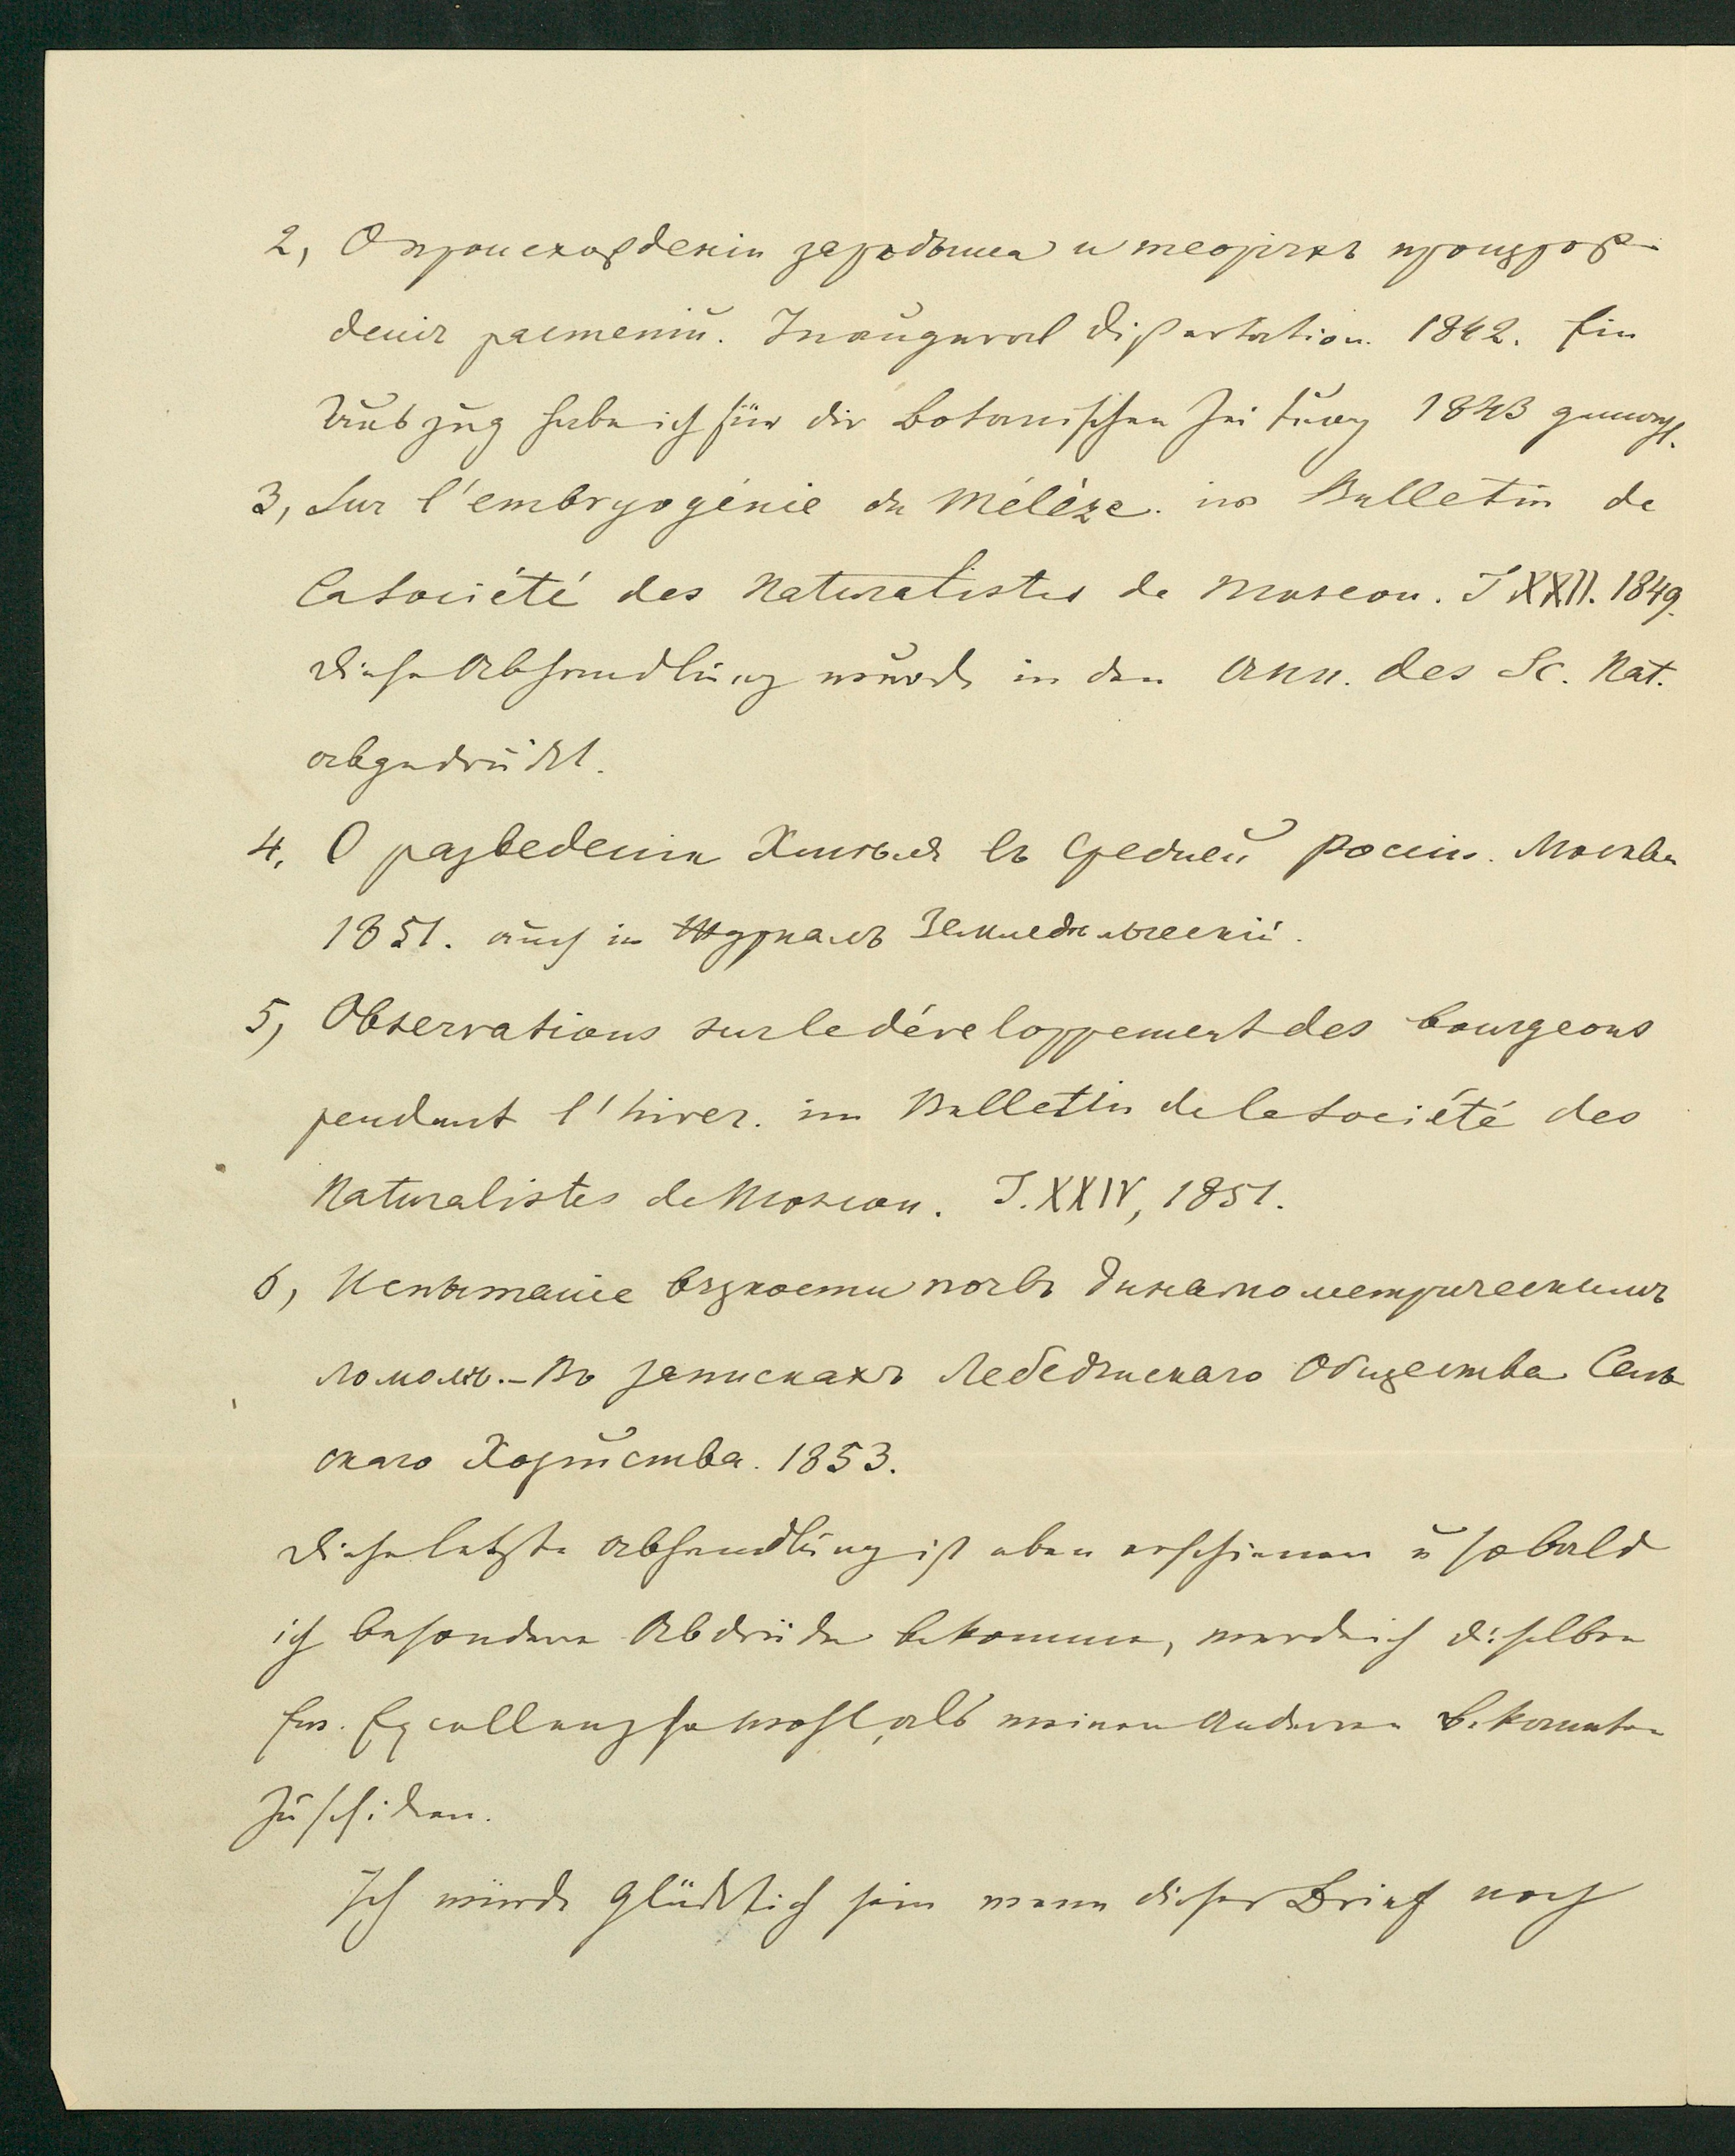 2, О происхожденіи зародыша и теоріяхъ произрож-
денія растеній. Inaugural Dissertation. 1842. Ein
Auszug habe ich für die Botanischen Zeitung 1843 gemacht.
3, Sur l'embryogénie du Mélèze. im Bulletin de
la Société des Naturalistes de Moscou. T XXII. 1849.
Diese Abhandlung wurde in den Ann. des Sc. Nat.
abgedrückt.
4, О разведеніи Хмѣля въ Средней Росіи. Москва
1851. auch in Журналъ Земледѣльческій.
5, Observations sur le développement des bourgeons
pendant l'hiver. im Bulletin de la Société des
Naturalistes de Moscou. T. XXIV, 1851.
6, Испытаніе вязкости почвъ динамометрическимъ
ломомъ. – Въ запискахъ Лебедянскаго Общества Сель
скаго Хозяйства. 1853.
Diese letzte Abhandlung ist eben erschienen u sobald
ich besondere Abdrücke bekomme, werde ich dieselben
Ew. Excellenz sowohl, als meinen Anderen Bekannten
zuschicken.
Ich würde glücklich sein wenn dieser Brief noch